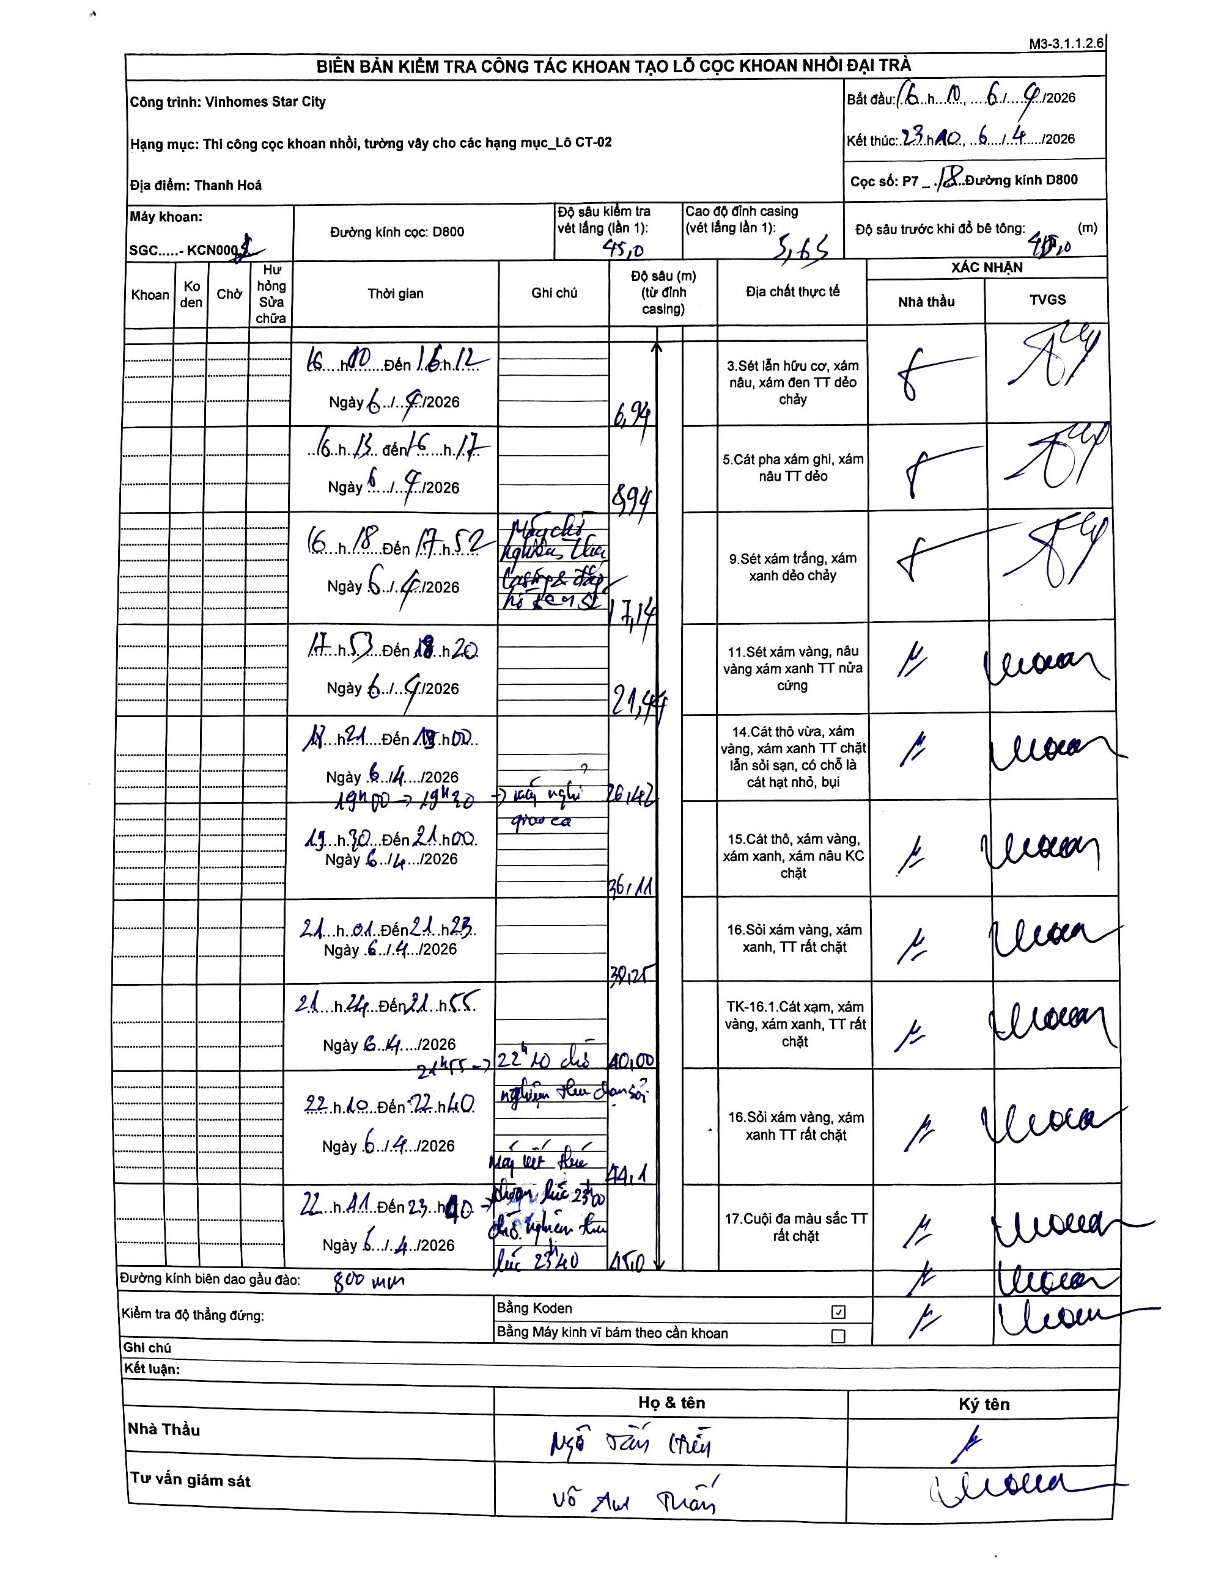 M3-3.1.1.2.6
BIÊN BẢN KIỂM TRA CÔNG TÁC KHOAN TẠO LỖ CỌC KHOAN NHỒI ĐẠI TRÀ
Công trình: Vinhomes Star City
Bắt đầu: 16 h 10, 6/4/2026
Hạng mục: Thi công cọc khoan nhồi, tường vây cho các hạng mục_Lô CT-02
Kết thúc: 23 h 40, 6/4/2026
Địa điểm: Thanh Hoá
Cọc số: P7_18 Đường kính D800
Máy khoan:
SGC.....- KCN000
Đường kính cọc: D800
Độ sâu kiểm tra vét lắng (lần 1): 45,0
Cao độ đỉnh casing (vét lắng lần 1): 5,65
Độ sâu trước khi đổ bê tông: 45,0 (m)
Khoan
Ko den
Chờ
Hư hỏng Sửa chữa
Thời gian
Ghi chú
Độ sâu (m) (từ đỉnh casing)
Địa chất thực tế
XÁC NHẬN
Nhà thầu
TVGS
16 h 10 Đến 16 h 12
Ngày 6/4/2026
6,94
3.Sét lẫn hữu cơ, xám nâu, xám đen TT dẻo chảy
16 h 13 đến 16 h 17
Ngày 6/4/2026
8,94
5.Cát pha xám ghi, xám nâu TT dẻo
16 h 18 Đến 17 h 52
Ngày 6/4/2026
Máy chờ
nghiệm thu
Casing & đắp
17,14
9.Sét xám trắng, xám xanh dẻo chảy
17 h 53 Đến 18 h 20
Ngày 6/4/2026
21,44
11.Sét xám vàng, nâu vàng xám xanh TT nửa cứng
18 h 21 Đến 19 h 00
Ngày 6/4/2026
19h00 -> 19h30 -> máy nghỉ
giao ca
26,42
14.Cát thô vừa, xám vàng, xám xanh TT chặt lẫn sỏi sạn, có chỗ là cát hạt nhỏ, bụi
19 h 30 Đến 21 h 00
Ngày 6/4/2026
36,11
15.Cát thô, xám vàng, xám xanh, xám nâu KC chặt
21 h 01 Đến 21 h 23
Ngày 6/4/2026
16.Sỏi xám vàng, xám xanh, TT rất chặt
21 h 24 Đến 21 h 55
Ngày 6/4/2026
21h55 -> 22h10 chờ
nghiệm thu chạm sỏi
40,00
TK-16.1.Cát xạm, xám vàng, xám xanh, TT rất chặt
22 h 10 Đến 22 h 40
Ngày 6/4/2026
44,1
16.Sỏi xám vàng, xám xanh TT rất chặt
22 h 41 Đến 23 h 40
Ngày 6/4/2026
Máy vét
lúc 23h00
chờ nghiệm thu
lúc 23h40
45,0
17.Cuội đa màu sắc TT rất chặt
Đường kính biên dao gầu đào: 800 mm
Kiểm tra độ thẳng đứng:
Bằng Koden ☑
Bằng Máy kinh vĩ bám theo cần khoan ☐
Ghi chú
Kết luận:
Họ & tên
Ký tên
Nhà Thầu
Ngô Tấn
Tư vấn giám sát
Võ Anh Tuấn